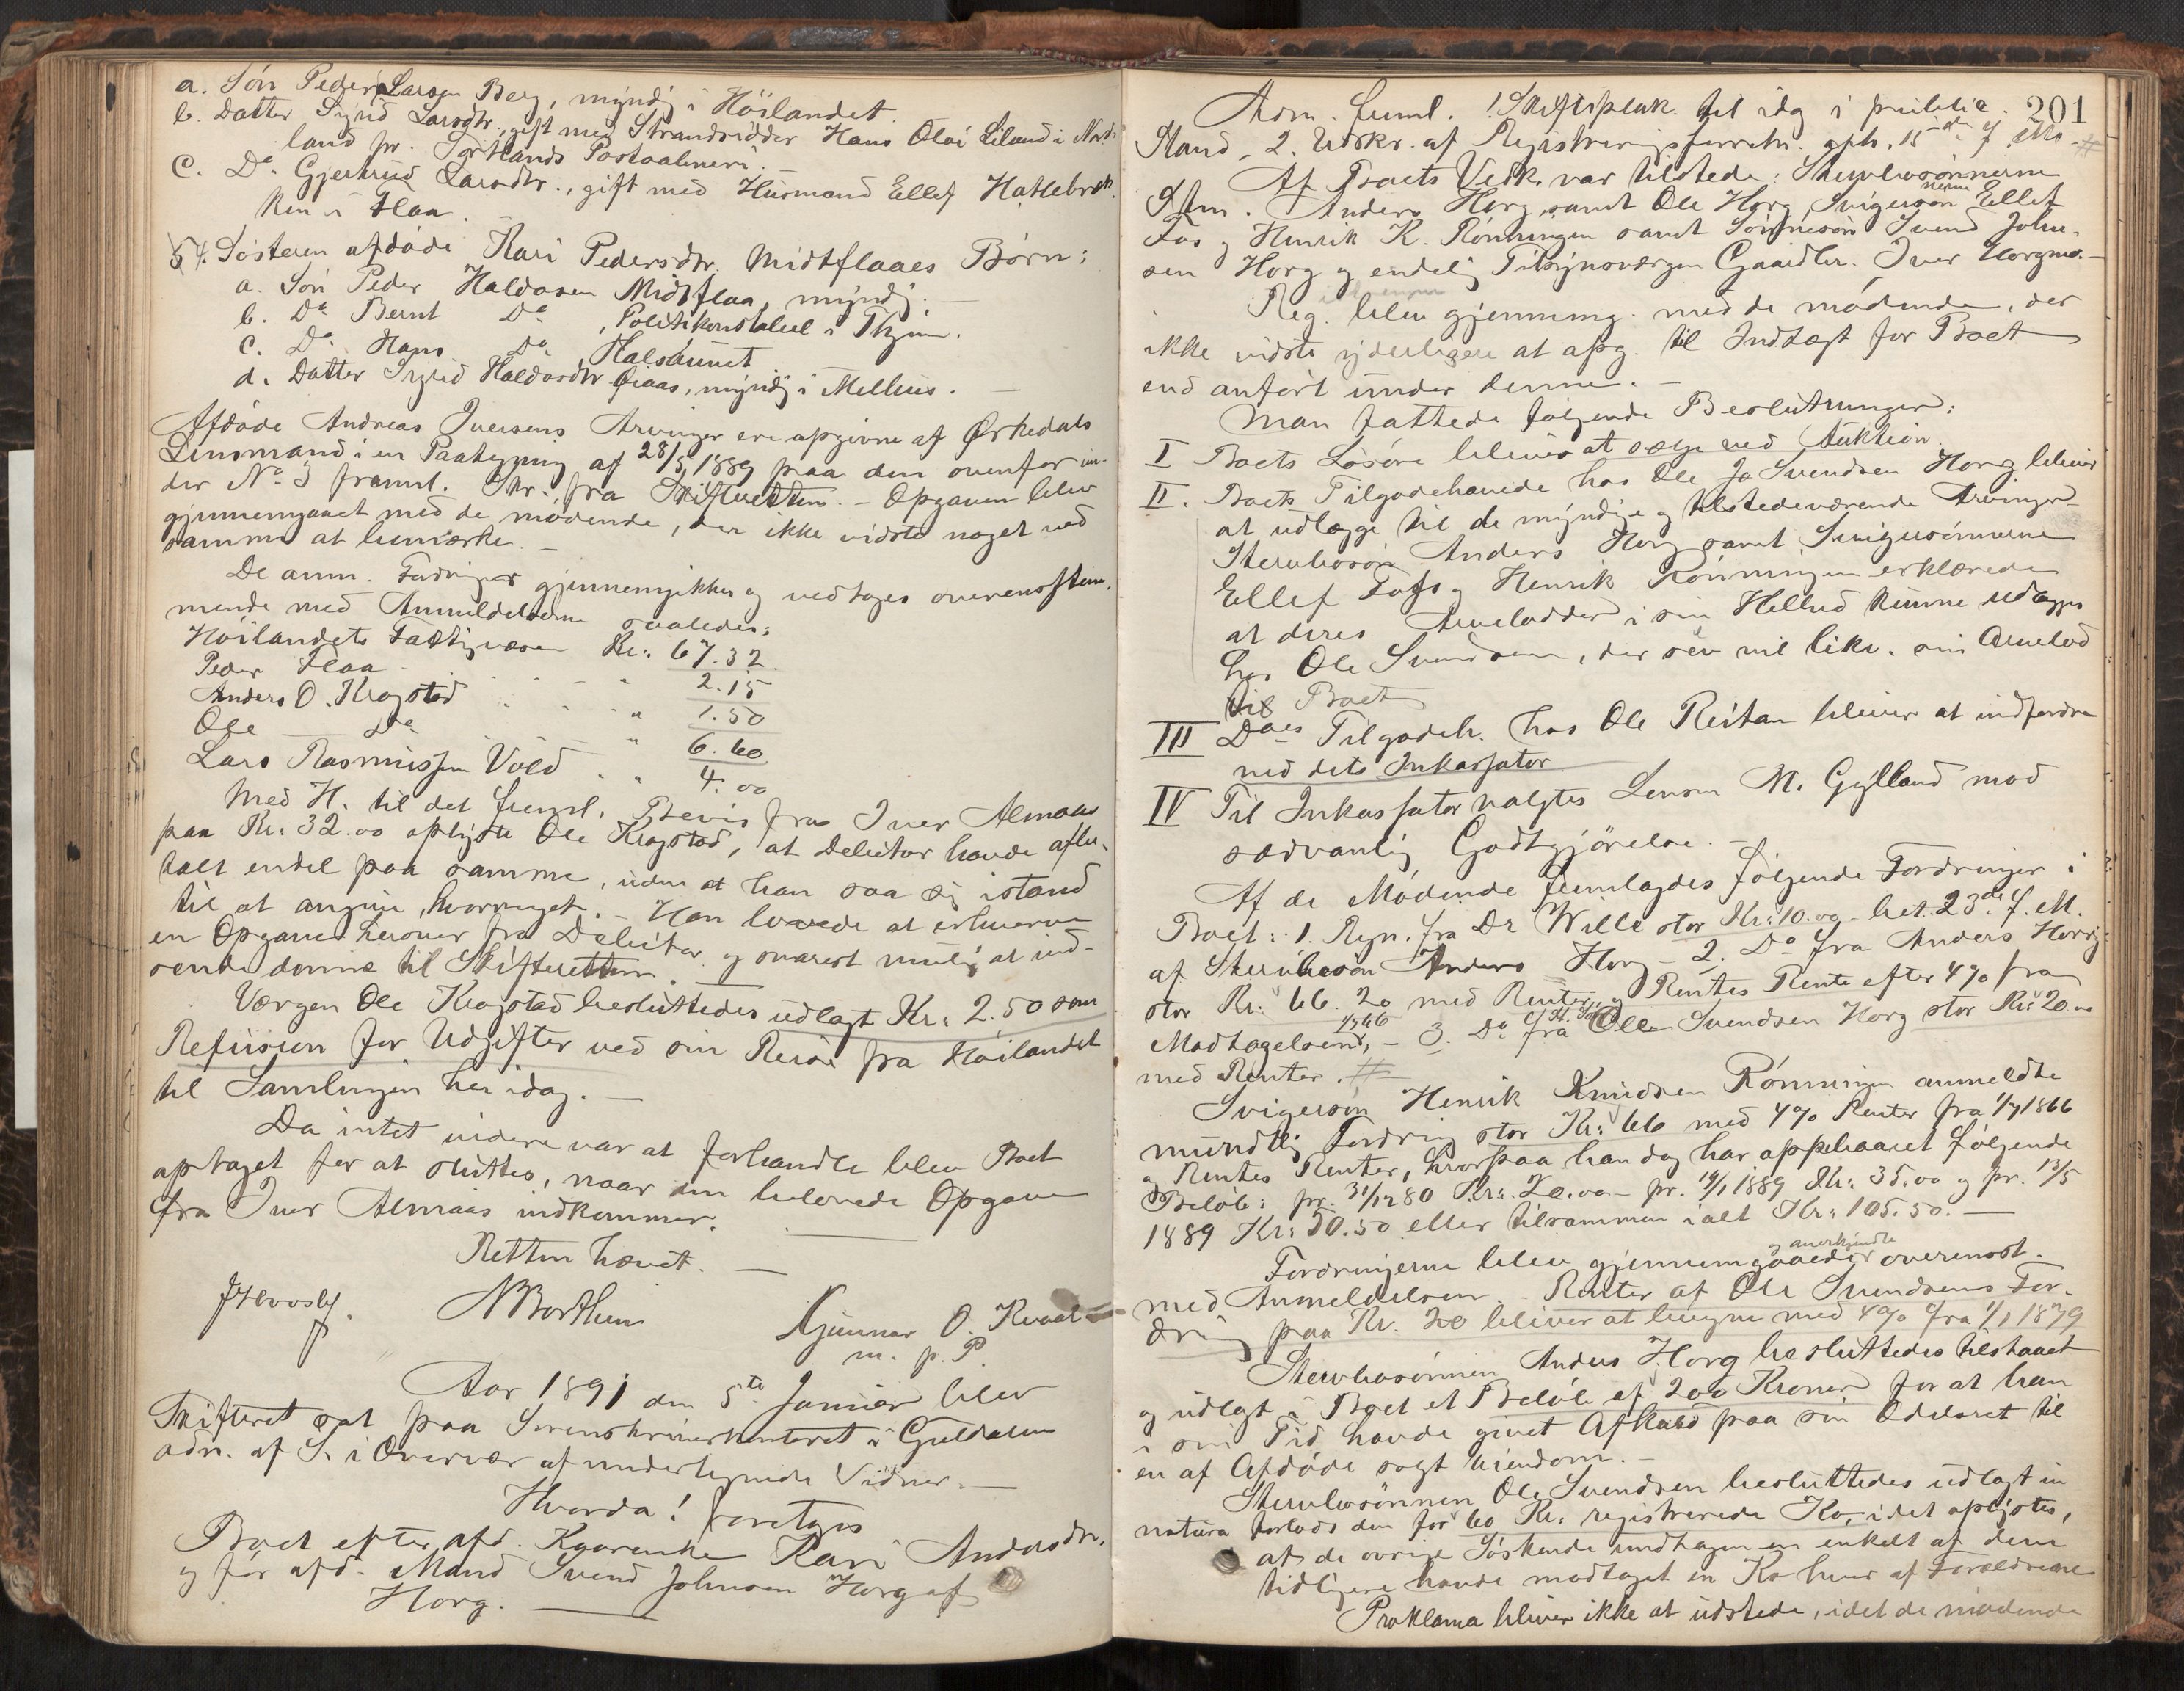 a. Søn Peder Larsen Berg, myndig i Høilandet.
b. Datter Sigrid Larsdtr., gift med Strandsidder Hans Olai Liland i Nord-
land pr. Torklands Postaabneri.
c. Do Gjertrud Larsdtr., gift med Husmand Ellef Hattebræk-
ken i Flaa.
54. Søsteren afdøde Kari Pedersdtr. Midtflaaes Børn:
a. Søn Peder Haldosen Midtflaa, myndig.
b. Do Bernt Do , Politikonstabel i Thjem.
c. Do Hans Do , Halsaunet
d. Datter Sigrid Haldosdtr Øiaas, myndig i Melhus.
Afdøde Andreas Iversens Arvinger ere opgivne af Ørkedals
Lensmand i en Paategning af 28/5 1889 paa den ovenfor un-
der No 3 freml. Skr. fra Skifteretten. - Opgaven blev
gjennemgaaet med de mødende, der ikke vidste noget ved
samme at bemærke. -
De anm. Fordringer gjennemgikkes og vedtoges overensstem-
mende med Anmeldelserne saaledes:
Høilandets Fattigvæsen Kr: 67.32
Peder Flaa " 2.15
Anders O. Krogstad " 1.50
Ole Do " 6.60
Lars Rasmussen Vold " 4.00
Med H. til det freml. Bevis fra Iver Almaas
paa Kr: 32.00 oplyste Ole Krogstad, at Debitor havde afbe-
talt endel paa samme, uden at han saa sig istand
til at angive, hvormeget. - Han lovede at erhverve
en Opgave herover fra Debitor og snarest mulig at ind-
sende denne til Skifteretten.
Værgen Ole Krogstad besluttedes udlagt Kr: 2.50 som
Refusion for Udgifter ved sin Reise fra Høilandet
til Samlingen her idag. -
Da intet videre var at forhandle blev Boet
optaget for at sluttes, naar den belovede Opgave
fra Iver Almaas indkommer.
Retten hævet. -
N Borthen
Gunnar O. Kvaal
m. p. P.
Aar 1891 den 5te Januar blev
Skifteret sat paa Sorenskriverkontoret i Guldalen
adm. af S. i Overvær af undertegnede Vidner. -
Hvorda! foretoges
Boet efter afd. Kaarenke Kari Andersdtr.
og før afd. Mand Svend Johnsen Horg af
Horg.
201
Adm. freml. 1. Skiftsplak. til idag i
Stand, 2. Udskr. af Registreringsforretn. afh. 15de f. Ms #
Af Boets Vedk. var tilstede: Stervbosønnerne
Anders Horg samt Ole Horg, Svigersønnerne Ellef
Fos og Henrik K. Rønningen samt Sønnesøn Svend John-
sen Horg og endelig Tilsynsværgen Gaardbr. Iver Horgmo. -
Reg. blev gjennemg. med de mødende, der
ikke vidste yderligere at opg. til Indtægt for Boet
end anført under denne. -
Man fattede følgende Beslutninger:
I Boets Løsøre bliver at sælge ved Auktion.
II. Boets Tilgodehavende hos Ole Svendsen Horg bliver
at udlægge til de myndige og tilstedeværende Arvinger
Stervbosøn Anders Horg samt Svigersønnerne
Ellef Fos og Henrik Rønningen erklærede
at deres Arvelodder i sin Helhed kunne udlægges
hos Ole Svendsen, der selv vil likv. sin Arvelod
til Boet
III Does Tilgodeh. hos Ole Reitan bliver at indfordre
ved dets Inkassator
IV Til Inkassator valgtes Lensm M. Gylland mod
sædvanlig Godtgjørelse. -
Af de Mødende fremlagdes følgende Fordringer i
Boet: 1. Regn. fra Dr Wille stor Kr: 10.00 - bet. 23de f. M.
af Stervbosøn Anders Horg - 2. Do fra Anders Horg
stor Kr: 66.20 med Renter og Rentes Rente efter 4% fra
Modtagelsen 1/7 66, - 3. Do fra St. Søn Ole Svendsen Horg stor Kr: 20.00
med Renter. #
Svigersøn Henrik Knudsen Rønningen anmeldte
mundtlig Fordring stor Kr: 66 med 4% Renter fra 1/7 1866
og Rentes Renter, hvorpaa han dog har oppebaaret følgende
Beløb: pr. 31/12 80 Kr: 20.00 - pr. 14/1 1889 Kr: 35.00 og pr. 13/5
1889 Kr: 50.50 eller tilsammen ialt Kr: 105.50. -
Fordringerne blev gjennemgaaede og anerkjendte overensst.
med Anmeldelsen. - Renter af Ole Svendsens For-
dring paa Kr. 20 bliver at beregne med 4% fra 1/1 1879
Stervbosønnen Anders Horg besluttedes tilstaaet
og udlagt i Boet et Beløb af 200 Kroner for at han
i sin Tid havde givet Afkald paa sin Odelsret til
en af Afdøde solgt Eiendom. -
Stervbosønnen Ole Svendsen besluttedes udlagt in
natura forlods den for 60 Kr: registrerede Ko, idet oplystes,
at de øvrige Søskende undtagen en enkelt af dem
tidligere havde modtaget en Ko hver af Forældrene
Proklama bliver ikke at udstede, idet de mødende